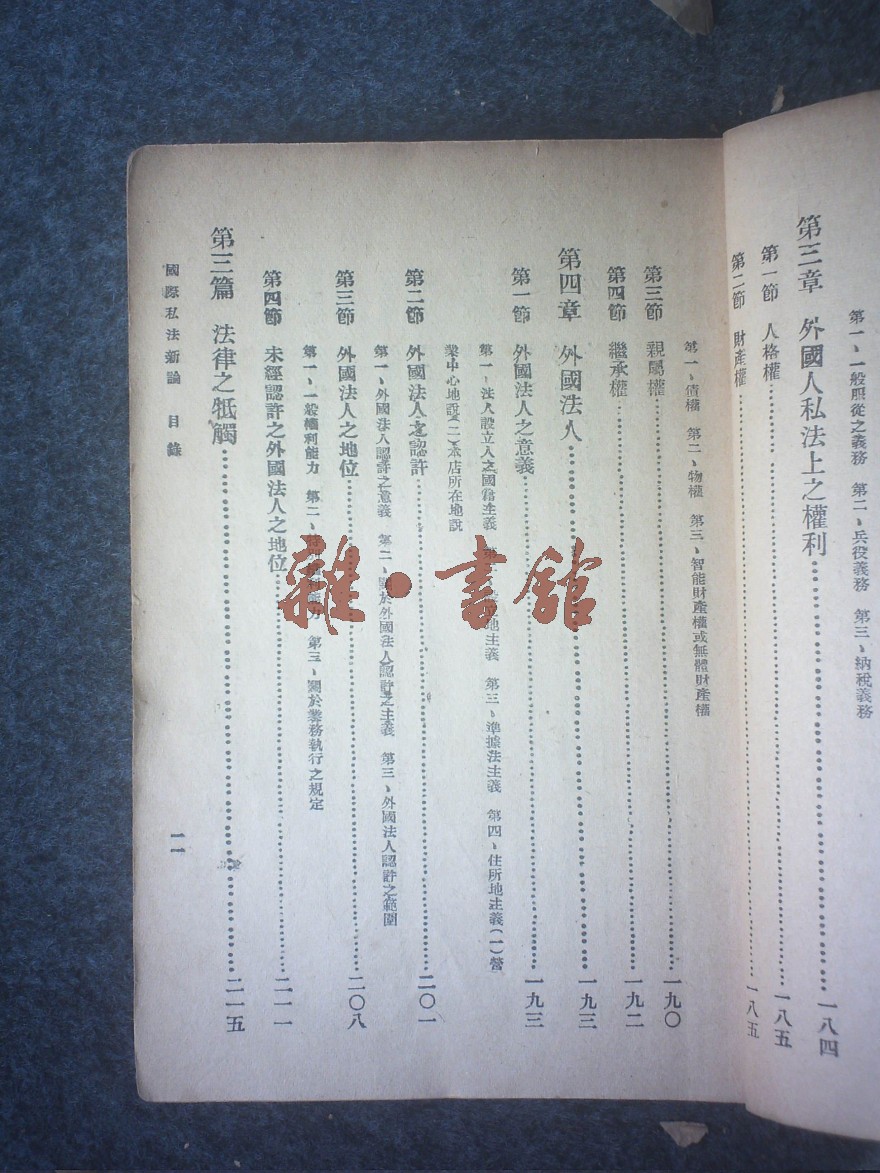 第一、一般服從之義務 第二、兵役義務 第三、納稅義務
第三章 外國人私法上之權利……一八四
第一節 人格權……一八五
第二節 財產權……一八五
第一、債權 第二、物權 第三、智能財產權或無體財產權
第三節 親屬權……一九〇
第四節 繼承權……一九二
第四章 外國法人……一九三
第一節 外國法人之意義……一九三
第一、法人設立人之國籍主義 地主義 第三、準據法主義 第四、住所地主義(一)營
業中心地說(二)本店所在地說
第二節 外國法人之認許……二〇一
第一、外國法人認許之意義 第二、關於外國法人認許之主義 第三、外國法人認許之範圍
第三節 外國法人之地位……二〇八
第一、一般權利能力 第二、權利能力 第三、關於業務執行之規定
第四節 未經認許之外國法人之地位……二一一
第三篇 法律之牴觸……二一五
國際私法新論 目錄
一一
雜·書館